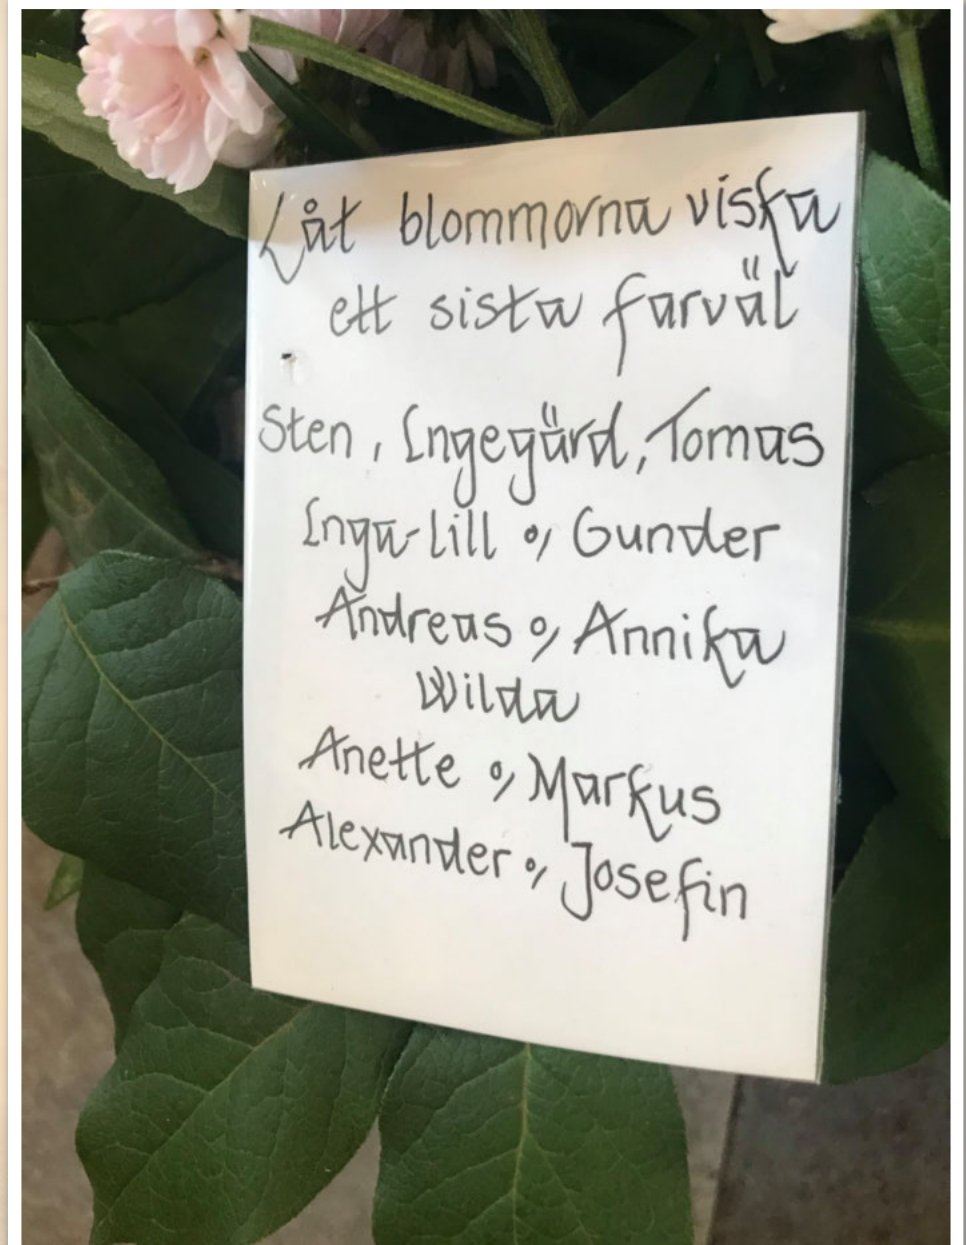 Låt blommorna viska
ett sista farväl
Sten, Ingegärd, Tomas
Inga-Lill o, Gunder
Andreas o, Annika
Wilda
Anette o, Markus
Alexander o, Josefin